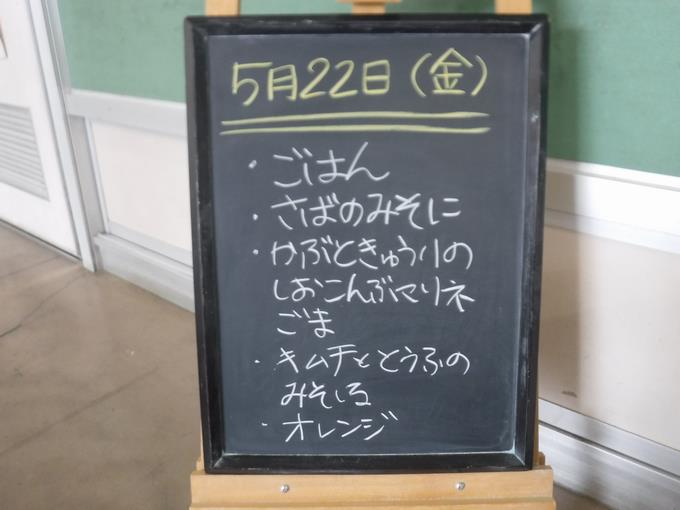 5月22日(金)
・ごはん
・さばのみそに
・かぶときゅうりの
しおこんぶマリネ
ごま
・キムチととうふの
みそしる
・オレンジ